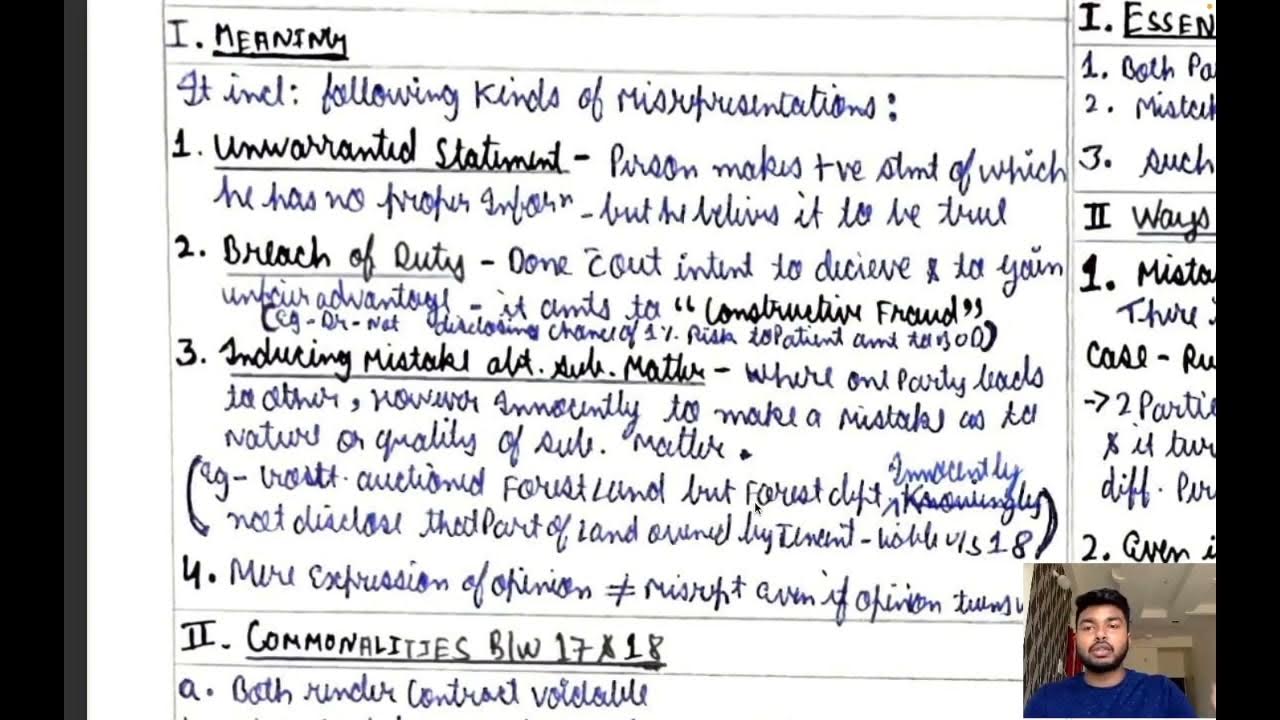 I. MEANING
It incl: following Kinds of Misrepresentations:
1. Unwarranted Statement - Person makes +ve stmt of which
he has no proper Inforⁿ - but he belives it to be true
2. Breach of Duty - Done c̄out intent to decieve & to gain
unfair advantage - it amts to "Constructive Fraud"
(eg - Dr - Not disclosing chance of 1% Risk to Patient amt to BOD)
3. Inducing Mistake abt. Sub. Matter - Where one Party leads
to other, However Innocently to make a Mistake as to
Nature or quality of Sub. Matter.
Innocently
(eg - Govtt. auctioned Forest Land but Forest dept, Knowingly
not disclose that Part of Land owned by Tenent - liable u/s 18)
4. Mere Expression of opinion ≠ Misrept even if opinion turns
II. COMMONALITIES B/W 17 & 18
a. Both render Contract voidable
I. ESSEN
1. Both Pa
2. Mistak
3. such
II Ways
1. Mista
There
Case - Ru
-> 2 Partie
& it tur
diff. Per
2. Even i